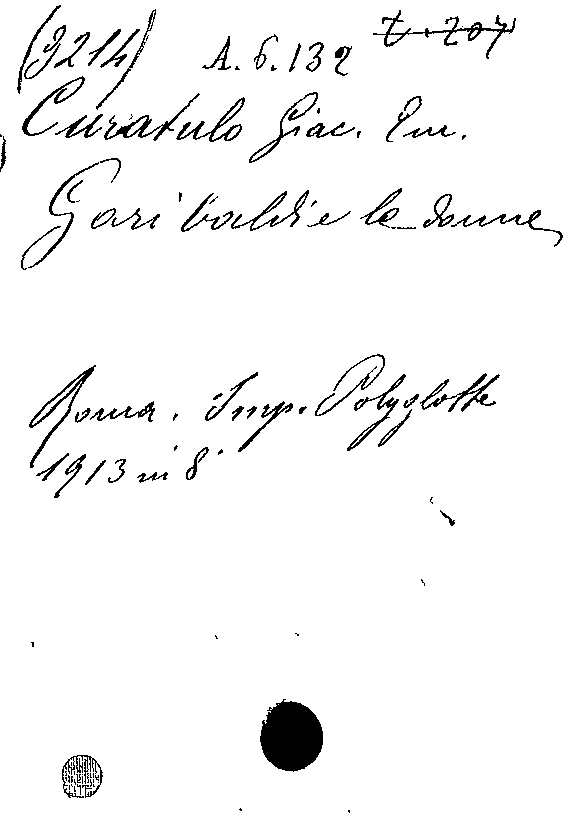 (9214) A. 6. 132 Z. 207
Curatulo Giac. Em.
Garibaldi e le donne
Roma. Imp. Polyglotte
1913 in 8°